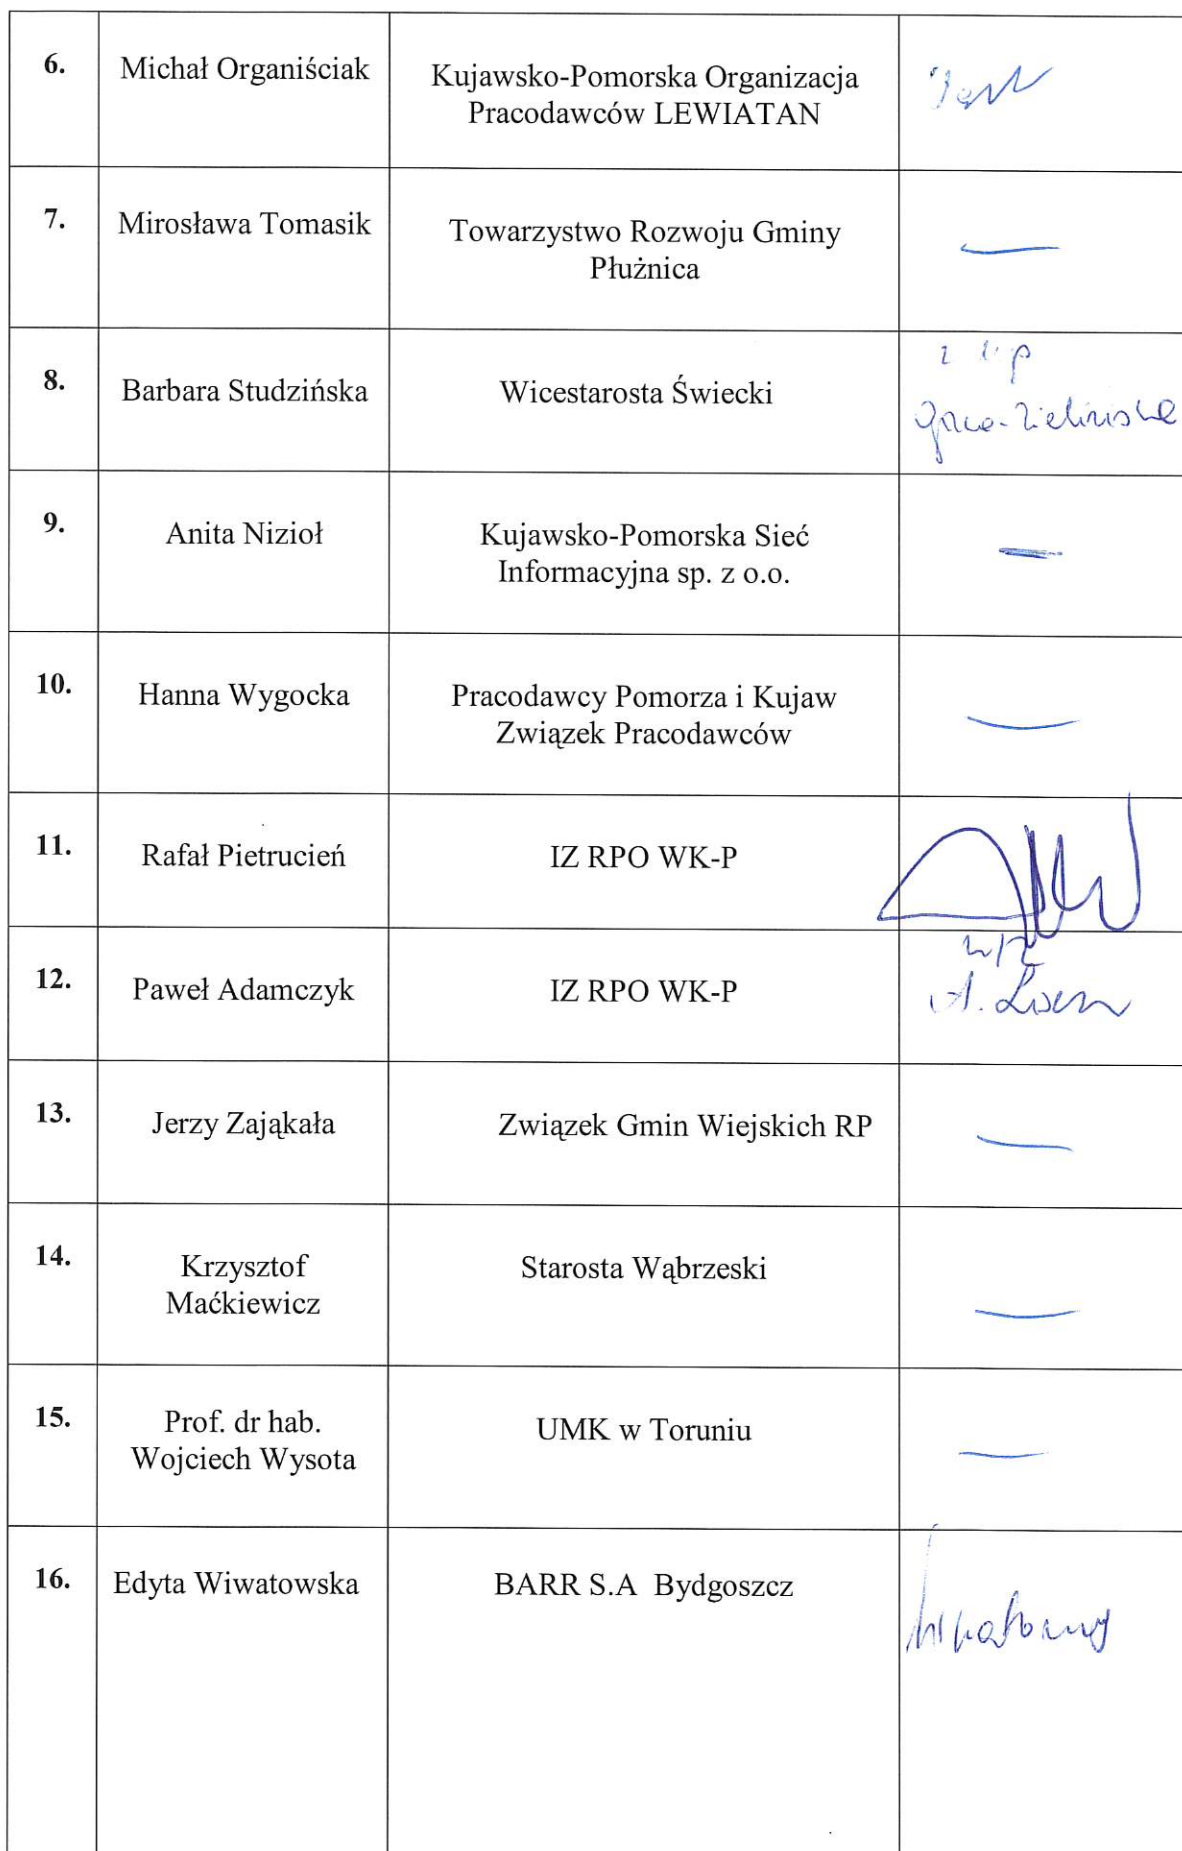 6.
Michał Organiściak
Kujawsko-Pomorska Organizacja
Pracodawców LEWIATAN
7.
Mirosława Tomasik
Towarzystwo Rozwoju Gminy
Płużnica
8.
Barbara Studzińska
Wicestarosta Świecki
9.
Anita Nizioł
Kujawsko-Pomorska Sieć
Informacyjna sp. z o.o.
10.
Hanna Wygocka
Pracodawcy Pomorza i Kujaw
Związek Pracodawców
11.
Rafał Pietrucień
IZ RPO WK-P
12.
Paweł Adamczyk
IZ RPO WK-P
13.
Jerzy Zająkała
Związek Gmin Wiejskich RP
14.
Krzysztof
Maćkiewicz
Starosta Wąbrzeski
15.
Prof. dr hab.
Wojciech Wysota
UMK w Toruniu
16.
Edyta Wiwatowska
BARR S.A Bydgoszcz